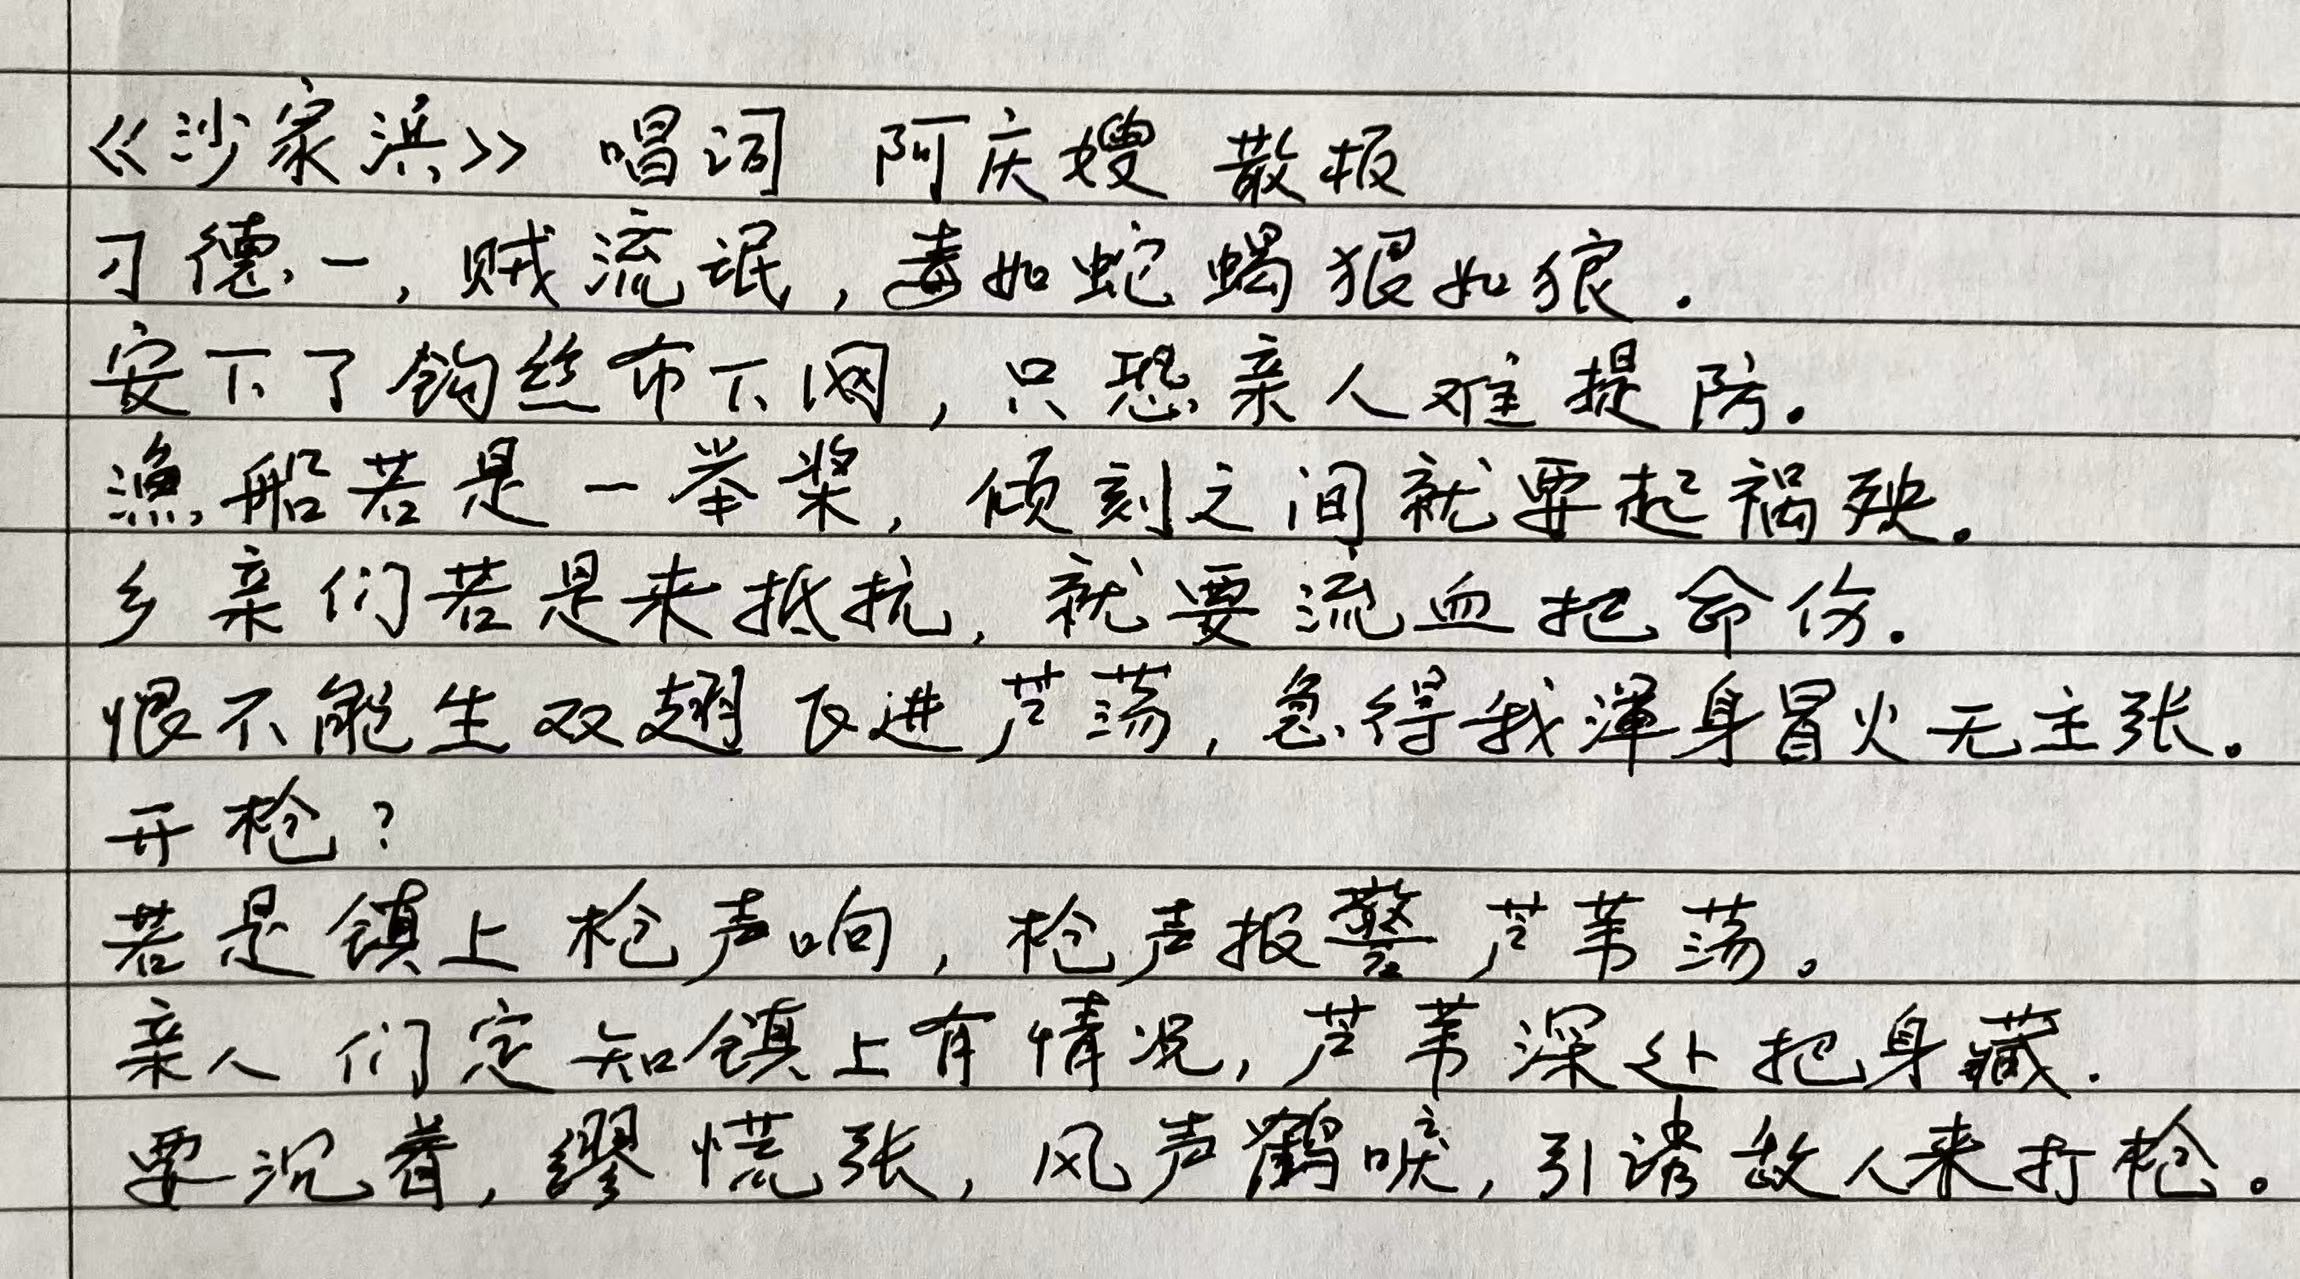 《沙家浜》 唱词 阿庆嫂 散板
刁德一,贼流氓,毒如蛇蝎狠如狼.
安下了钩丝布下网,只恐亲人难提防。
渔船若是一举桨,倾刻之间就要起祸殃。
乡亲们若是来抵抗,就要流血把命伤.
恨不能生双翅飞进芦荡,急得我浑身冒火无主张。
开枪?
若是镇上枪声响,枪声报警芦苇荡。
亲人们定知镇上有情况,芦苇深处把身藏.
要沉着,缪慌张,风声鹤唳,引诱敌人来打枪。